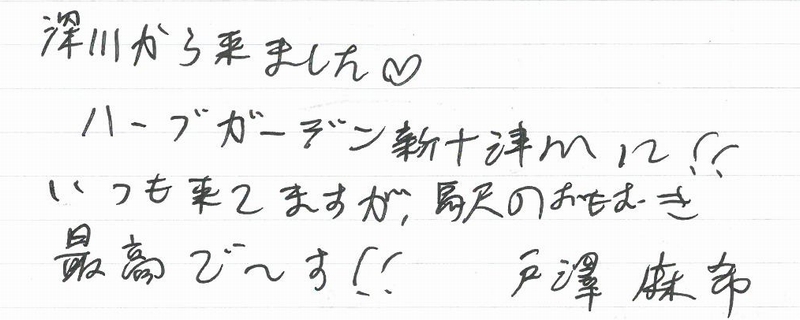 深川から来ました♡
ハーブガーデン新十津川に!!
いつも来てますが、駅のおもむき
最高で〜す!!　戸澤 麻希